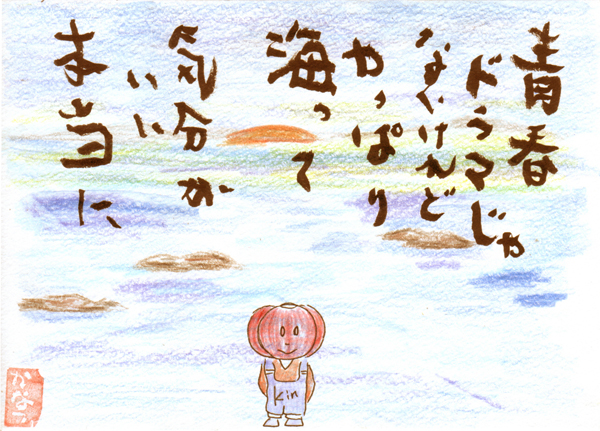 青春
ドラマじゃ
ないけれど
やっぱり
海って
気分が
いい
本当に
Kin